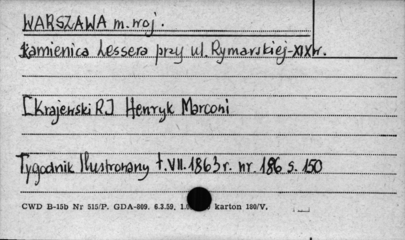 WARSZAWA m. woj.
kamienica Lessera przy ul. Rymarskiej-XIX w.
[Krajewski R.] Henryk Marconi
Tygodnik Ilustrowany t. VII. 1863 r. nr. 186 s. 150
CWD B-15b Nr 515/P. GDA-809. 6.3.59, karton 180/V.